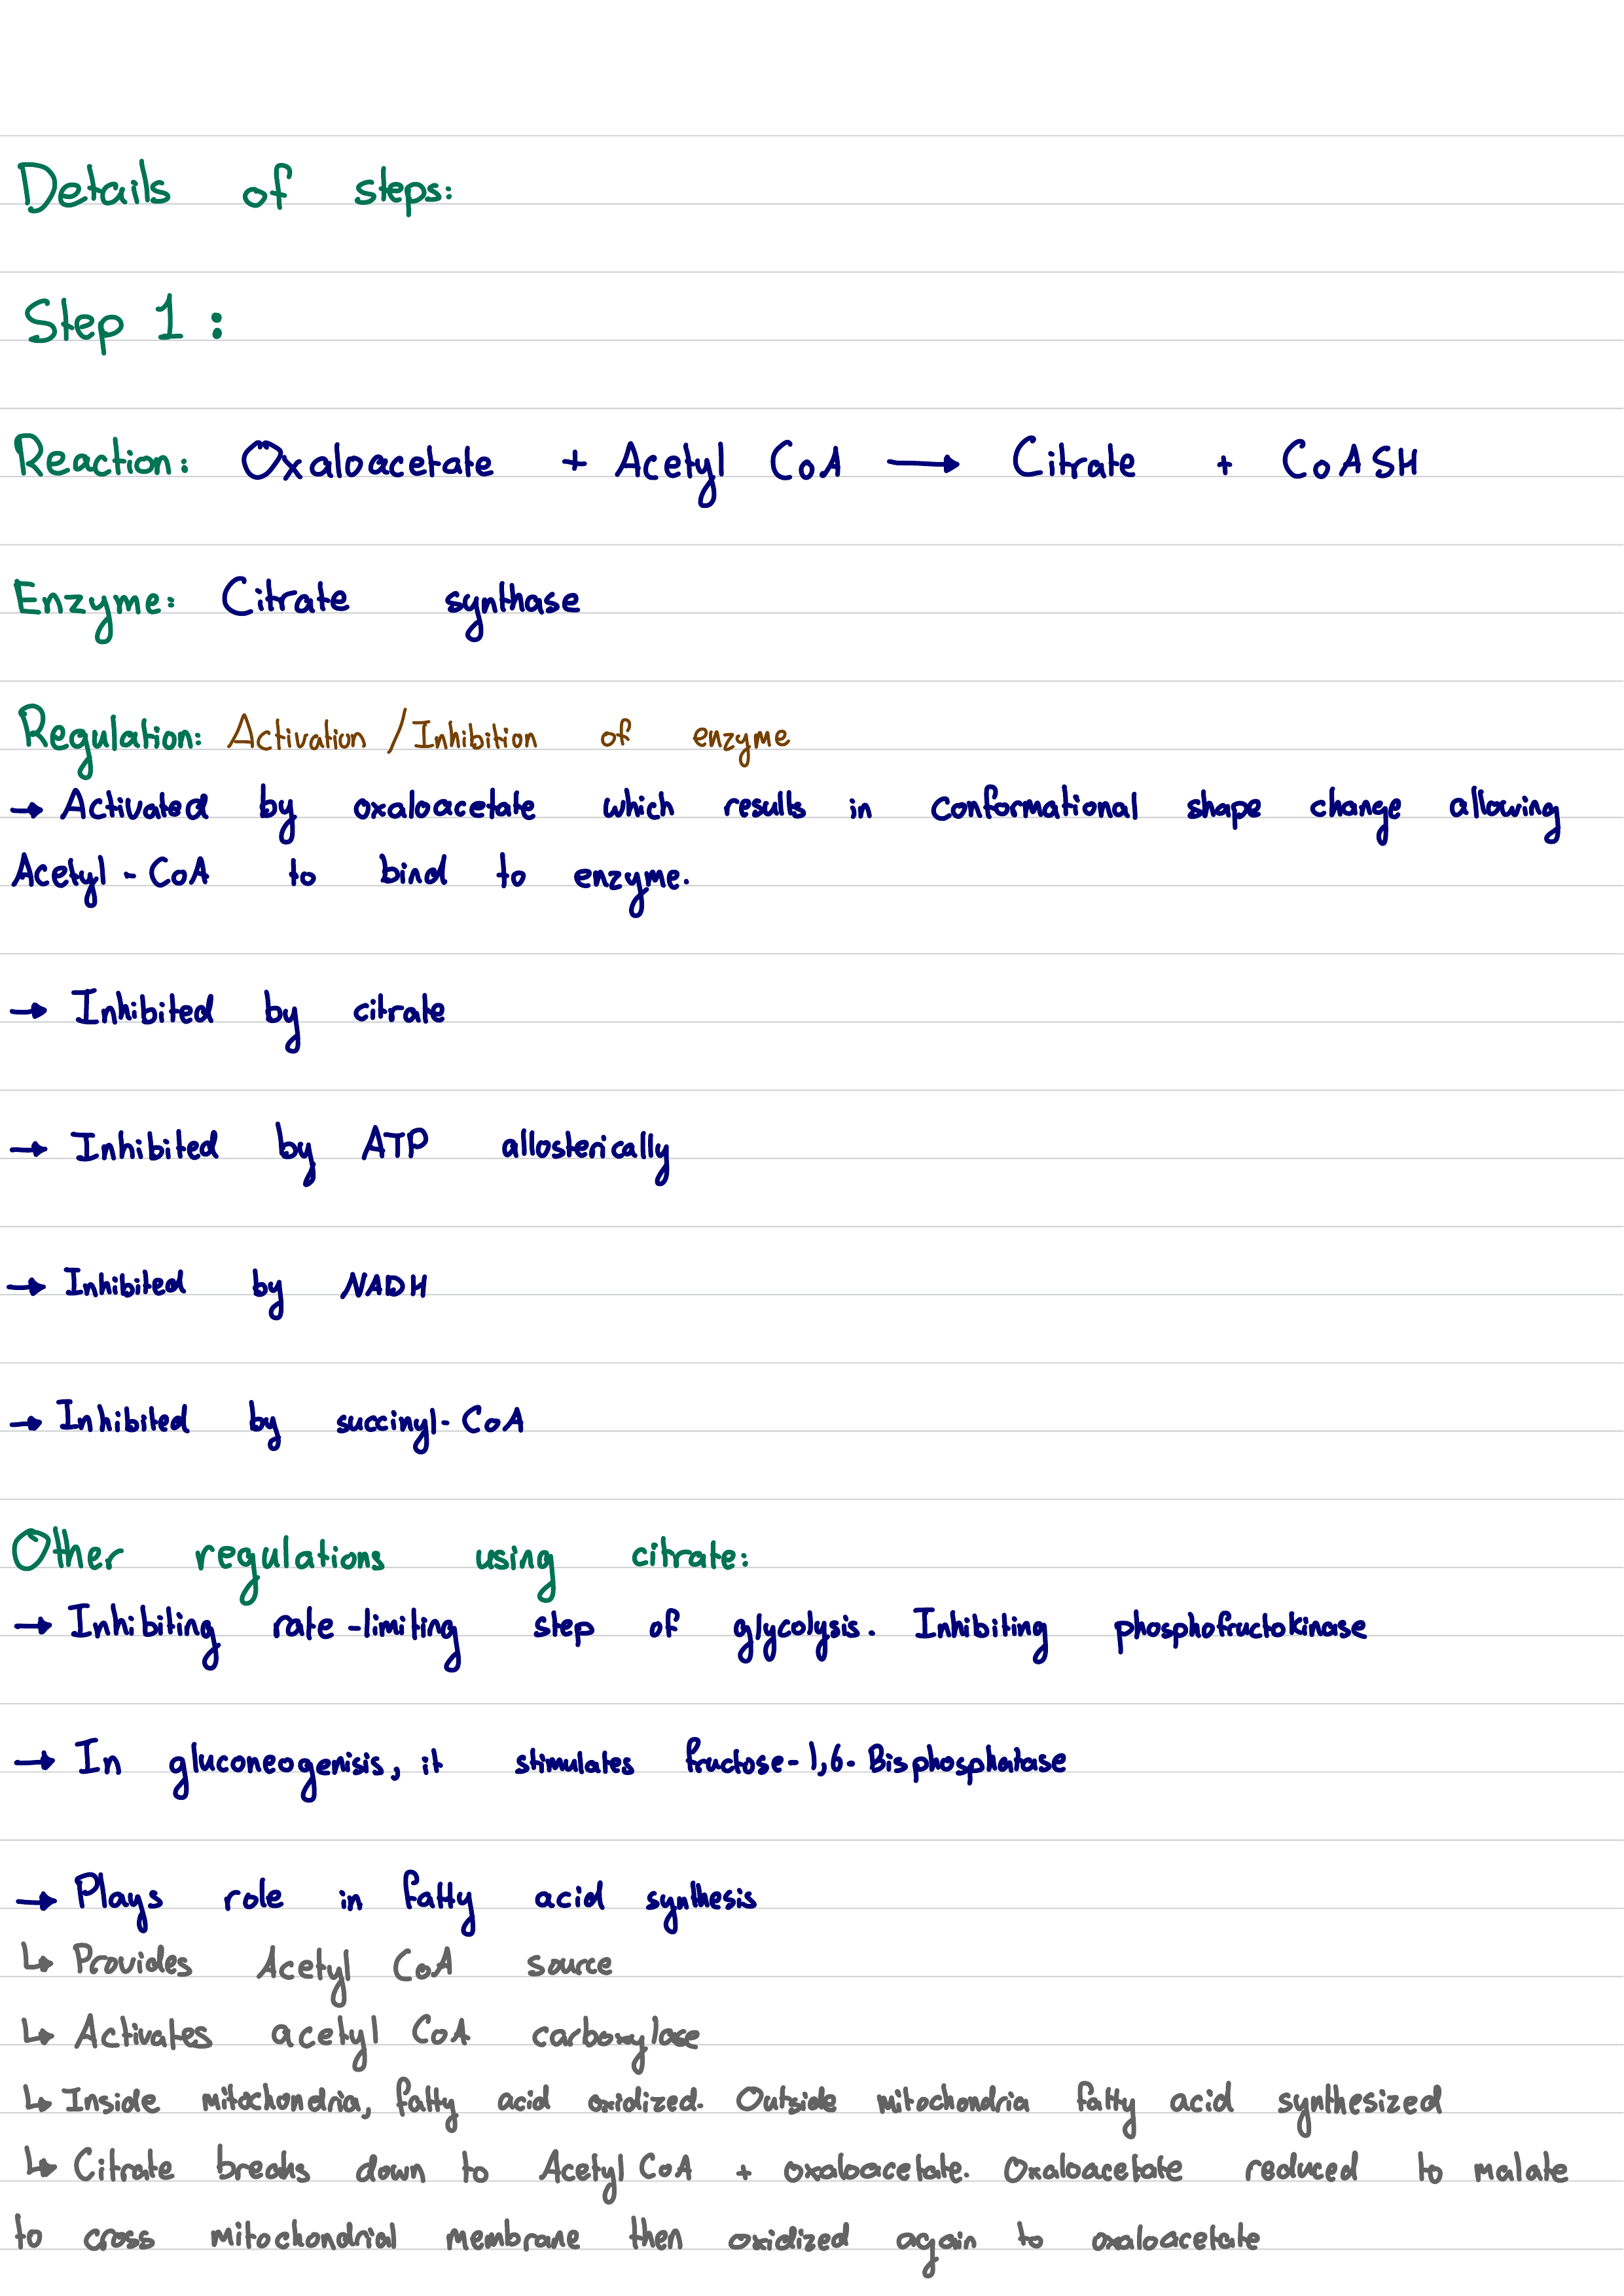 Details of steps:
Step 1 :
Reaction: Oxaloacetate + Acetyl CoA → Citrate + CoASH
Enzyme: Citrate synthase
Regulation: Activation / Inhibition of enzyme
→ Activated by oxaloacetate which results in conformational shape change allowing
Acetyl - CoA to bind to enzyme.
→ Inhibited by citrate
→ Inhibited by ATP allosterically
→ Inhibited by NADH
→ Inhibited by succinyl-CoA
Other regulations using citrate:
→ Inhibiting rate-limiting step of glycolysis. Inhibiting phosphofructokinase
→ In gluconeogenisis, it stimulates fructose-1,6-Bisphosphatase
→ Plays role in fatty acid synthesis
↳ Provides Acetyl CoA source
↳ Activates acetyl CoA carboxylase
↳ Inside mitochondria, fatty acid oxidized. Outside mitochondria fatty acid synthesized
↳ Citrate breaks down to Acetyl CoA + oxaloacetate. Oxaloacetate reduced to malate
to cross mitochondrial membrane then oxidized again to oxaloacetate